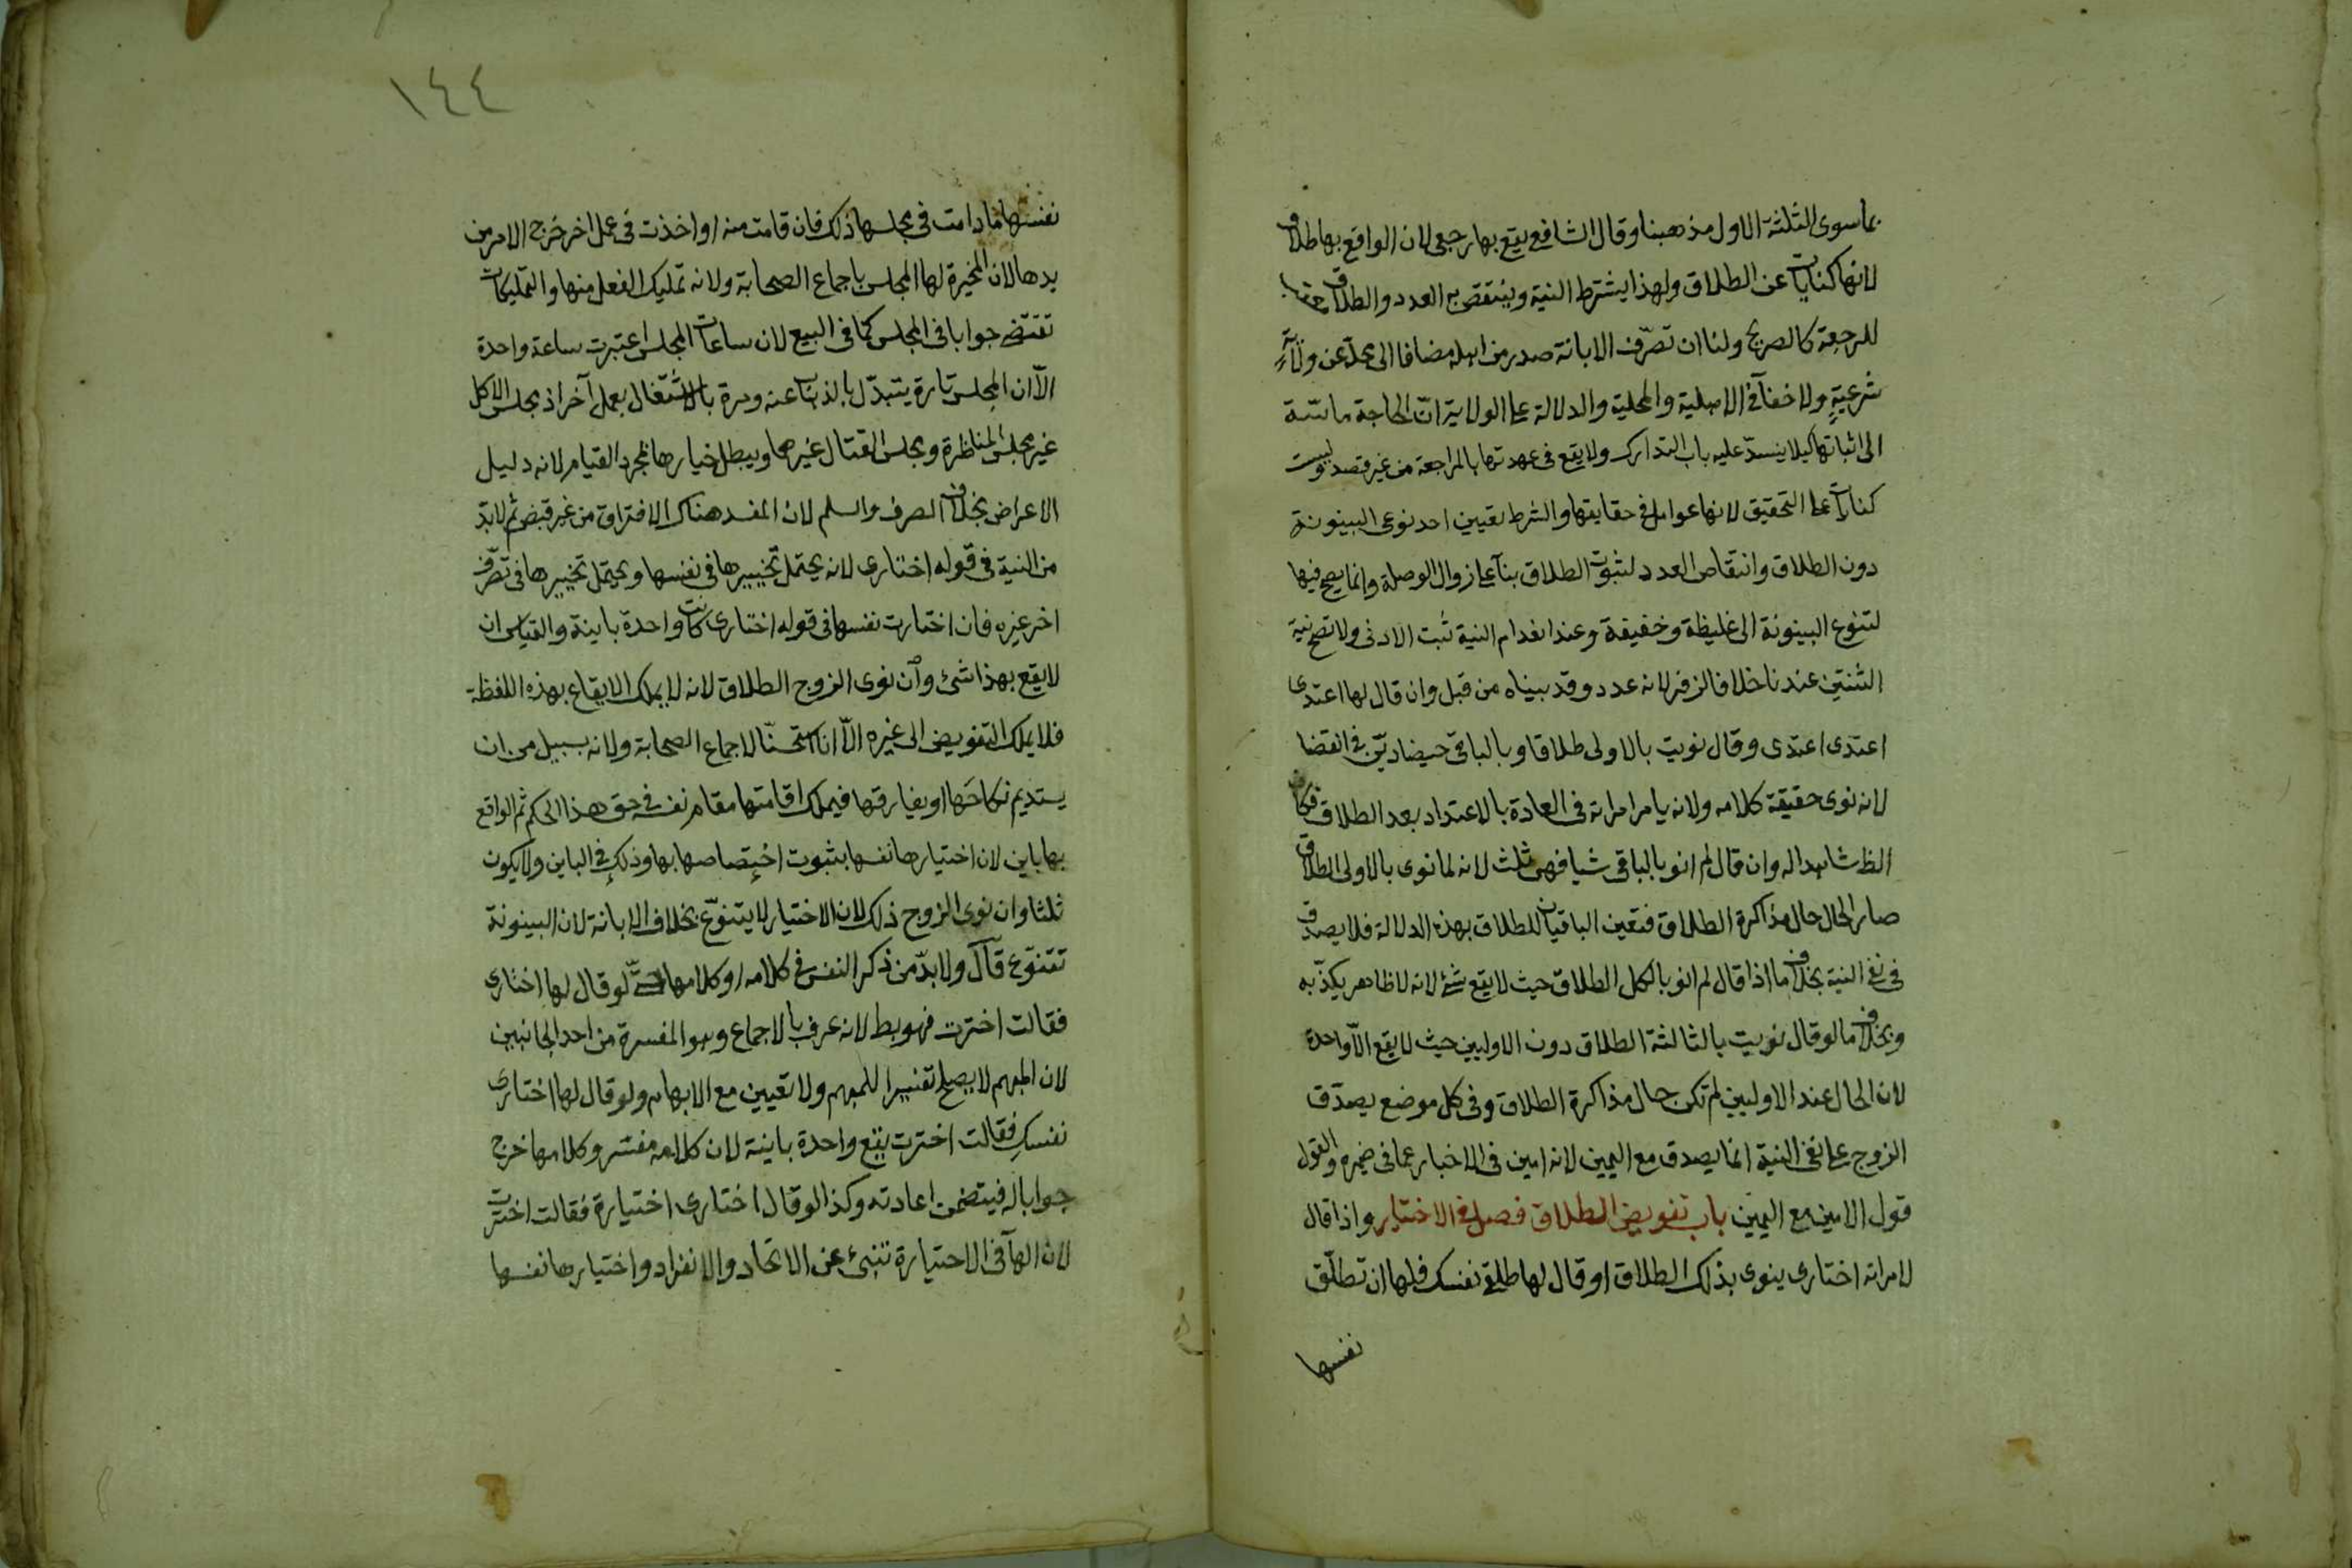 بما سوى الثلثة الاول مذهبنا وقال الشافعي يقع بها رجعي لان الواقع بها طلاق
لانها كنايات عن الطلاق ولهذا يشترط النية وينتقص به العدد والطلاق معقب
للرجعة كالصريح ولنا ان تصرّف الابانة صدر من اهله مضافا الى محله عن ولاية
شرعيةٍ ولا خفآء في الاهلية والمحلية والدلالة على الولاية انّ الحاجة ماسّة
الى اثباتها كيلا ينسدّ عليه باب التدارك ولا يقع في عهدتها بالمراجعة من غير قصد وليست
كنايات على التحقيق لانها عوامل في حقايقها والشرط تعيين احد نوعي البينونة
دون الطلاق وانتقاص العدد لثبوت الطلاق بنآء على زوال الوصلة وانما يصح فيها
لتنوع البينونة الى غليظة وخفيفة وعند انعدام النية ثبت الادنى ولا تصح نية
الثنتين عندنا خلافا لزفر لانه عدد وقد بيناه من قبل وان قال لها اعتدى
اعتدى اعتدى وقال نويت بالاولى طلاقا وبالباقي حيضا ديّن في القضا
لانه نوى حقيقة كلامه ولانه يامر امراته في العادة بالاعتداد بعد الطلاق فكان
الظ شاهدا له وان قال لم انو بالباقي شيا فهي ثلث لانه لما نوى بالاولى الطلاق
صار الحال حال مذاكرة الطلاق فتعين الباقيان للطلاق بهذه الدلالة فلا يصدق
في نفي النية بخلاف ما اذا قال لم انو بالكل الطلاق حيث لا يقع شئ لانه لا ظاهر يكذّبه
وبخلاف ما لو قال نويت بالثالثة الطلاق دون الاوليين حيث لا يقع الّا واحدة
لان الحال عند الاوليين لم تكن حال مذاكرة الطلاق وفي كل موضع يصدّق
الزوج على نفي النية انما يصدق مع اليمين لانه امين في الاخبار عما في ضميره والقول
قول الامين مع اليمين باب تفويض الطلاق فصل في الاختيار واذا قال
لامراته اختارى ينوى بذلك الطلاق او قال لها طلقي نفسك فلها ان تطلّق
نفسها
١٤٤
نفسها ما دامت في مجلسها ذلك فان قامت منه او اخذت في عمل اخر خرج الامر من
يدها لان المخيرة لها المجلس باجماع الصحابة ولانه تمليك الفعل منها والتمليكات
تقتضي جوابا في المجلس كما في البيع لان ساعات المجلس اعتبرت ساعة واحدة
الّا ان المجلس تارة يتبدّل بالذهاب عنه ومرة بالاشتغال بعمل آخر اذ مجلس الاكل
غير مجلس المناظرة ومجلس القتال غيرهما ويبطل خيارها بمجرد القيام لانه دليل
الاعراض بخلاف الصرف والسلم لان المفسد هناك الافتراق من غير قبض ثم لابدّ
من النية في قوله اختارى لانه يحتمل تخييرها في نفسها ويحتمل تخييرها في تصرّف
اخر غيره فان اختارت نفسها في قوله اختارى كانت واحدة باينة والقياس ان
لا يقع بهذا شئ وان نوى الزوج الطلاق لانه لا يملك الايقاع بهذه اللفظة
فلا يملك التفويض الى غيره الّا انا استحسنّا لاجماع الصحابة ولانه بسبيل من ان
يستديم نكاحها او يفارقها فيملك اقامتها مقام نفسه في حق هذا الحكم ثم الواقع
بها باين لان اختيارها نفسها بثبوت اختصاصها بها وذلك في الباين ولا يكون
ثلثا وان نوى الزوج ذلك لان الاختيار لا يتنوّع بخلاف الابانة لان البينونة
تتنوّع قال ولابدّ من ذكر النفس في كلامه او كلامها حتّى لو قال لها اختارى
فقالت اخترت فهو بط لانه عرف بالاجماع وهو المفسرة من احد الجانبين
لان المبهم لا يصلح تفسيرا للمبهم ولا تعيين مع الابهام ولو قال لها اختارى
نفسكِ فقالت اخترت يقع واحدة باينة لان كلامه مفسّر وكلامها خرج
جوابا له فيتضمن اعادته وكذا لو قال اختارى اختيارة فقالت اخترت
لان الهآء في الاختيارة تنبئ عن الاتحاد والانفراد واختيارها نفسها